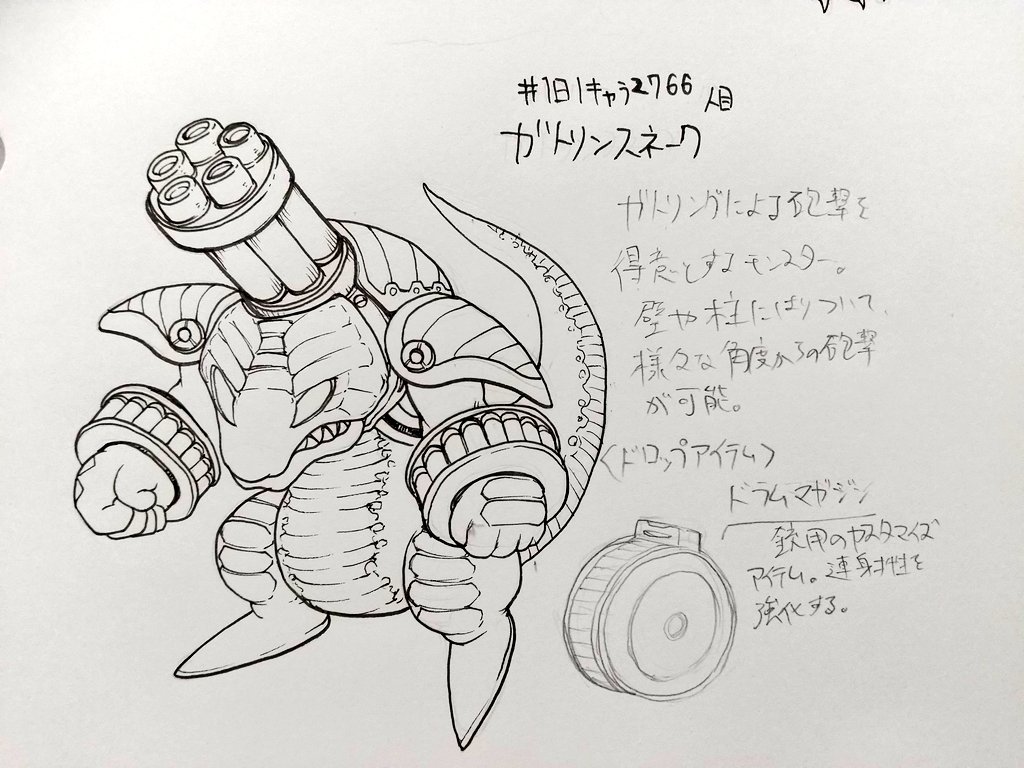 #1日1キャラ2766人目
ガトリンスネーク
ガトリングによる砲撃を
得意とするモンスター。
壁や柱にはりついて、
様々な角度からの砲撃
が可能。
<ドロップアイテム>
ドラムマガジン
銃用のカスタマイズ
アイテム。連射性を
強化する。